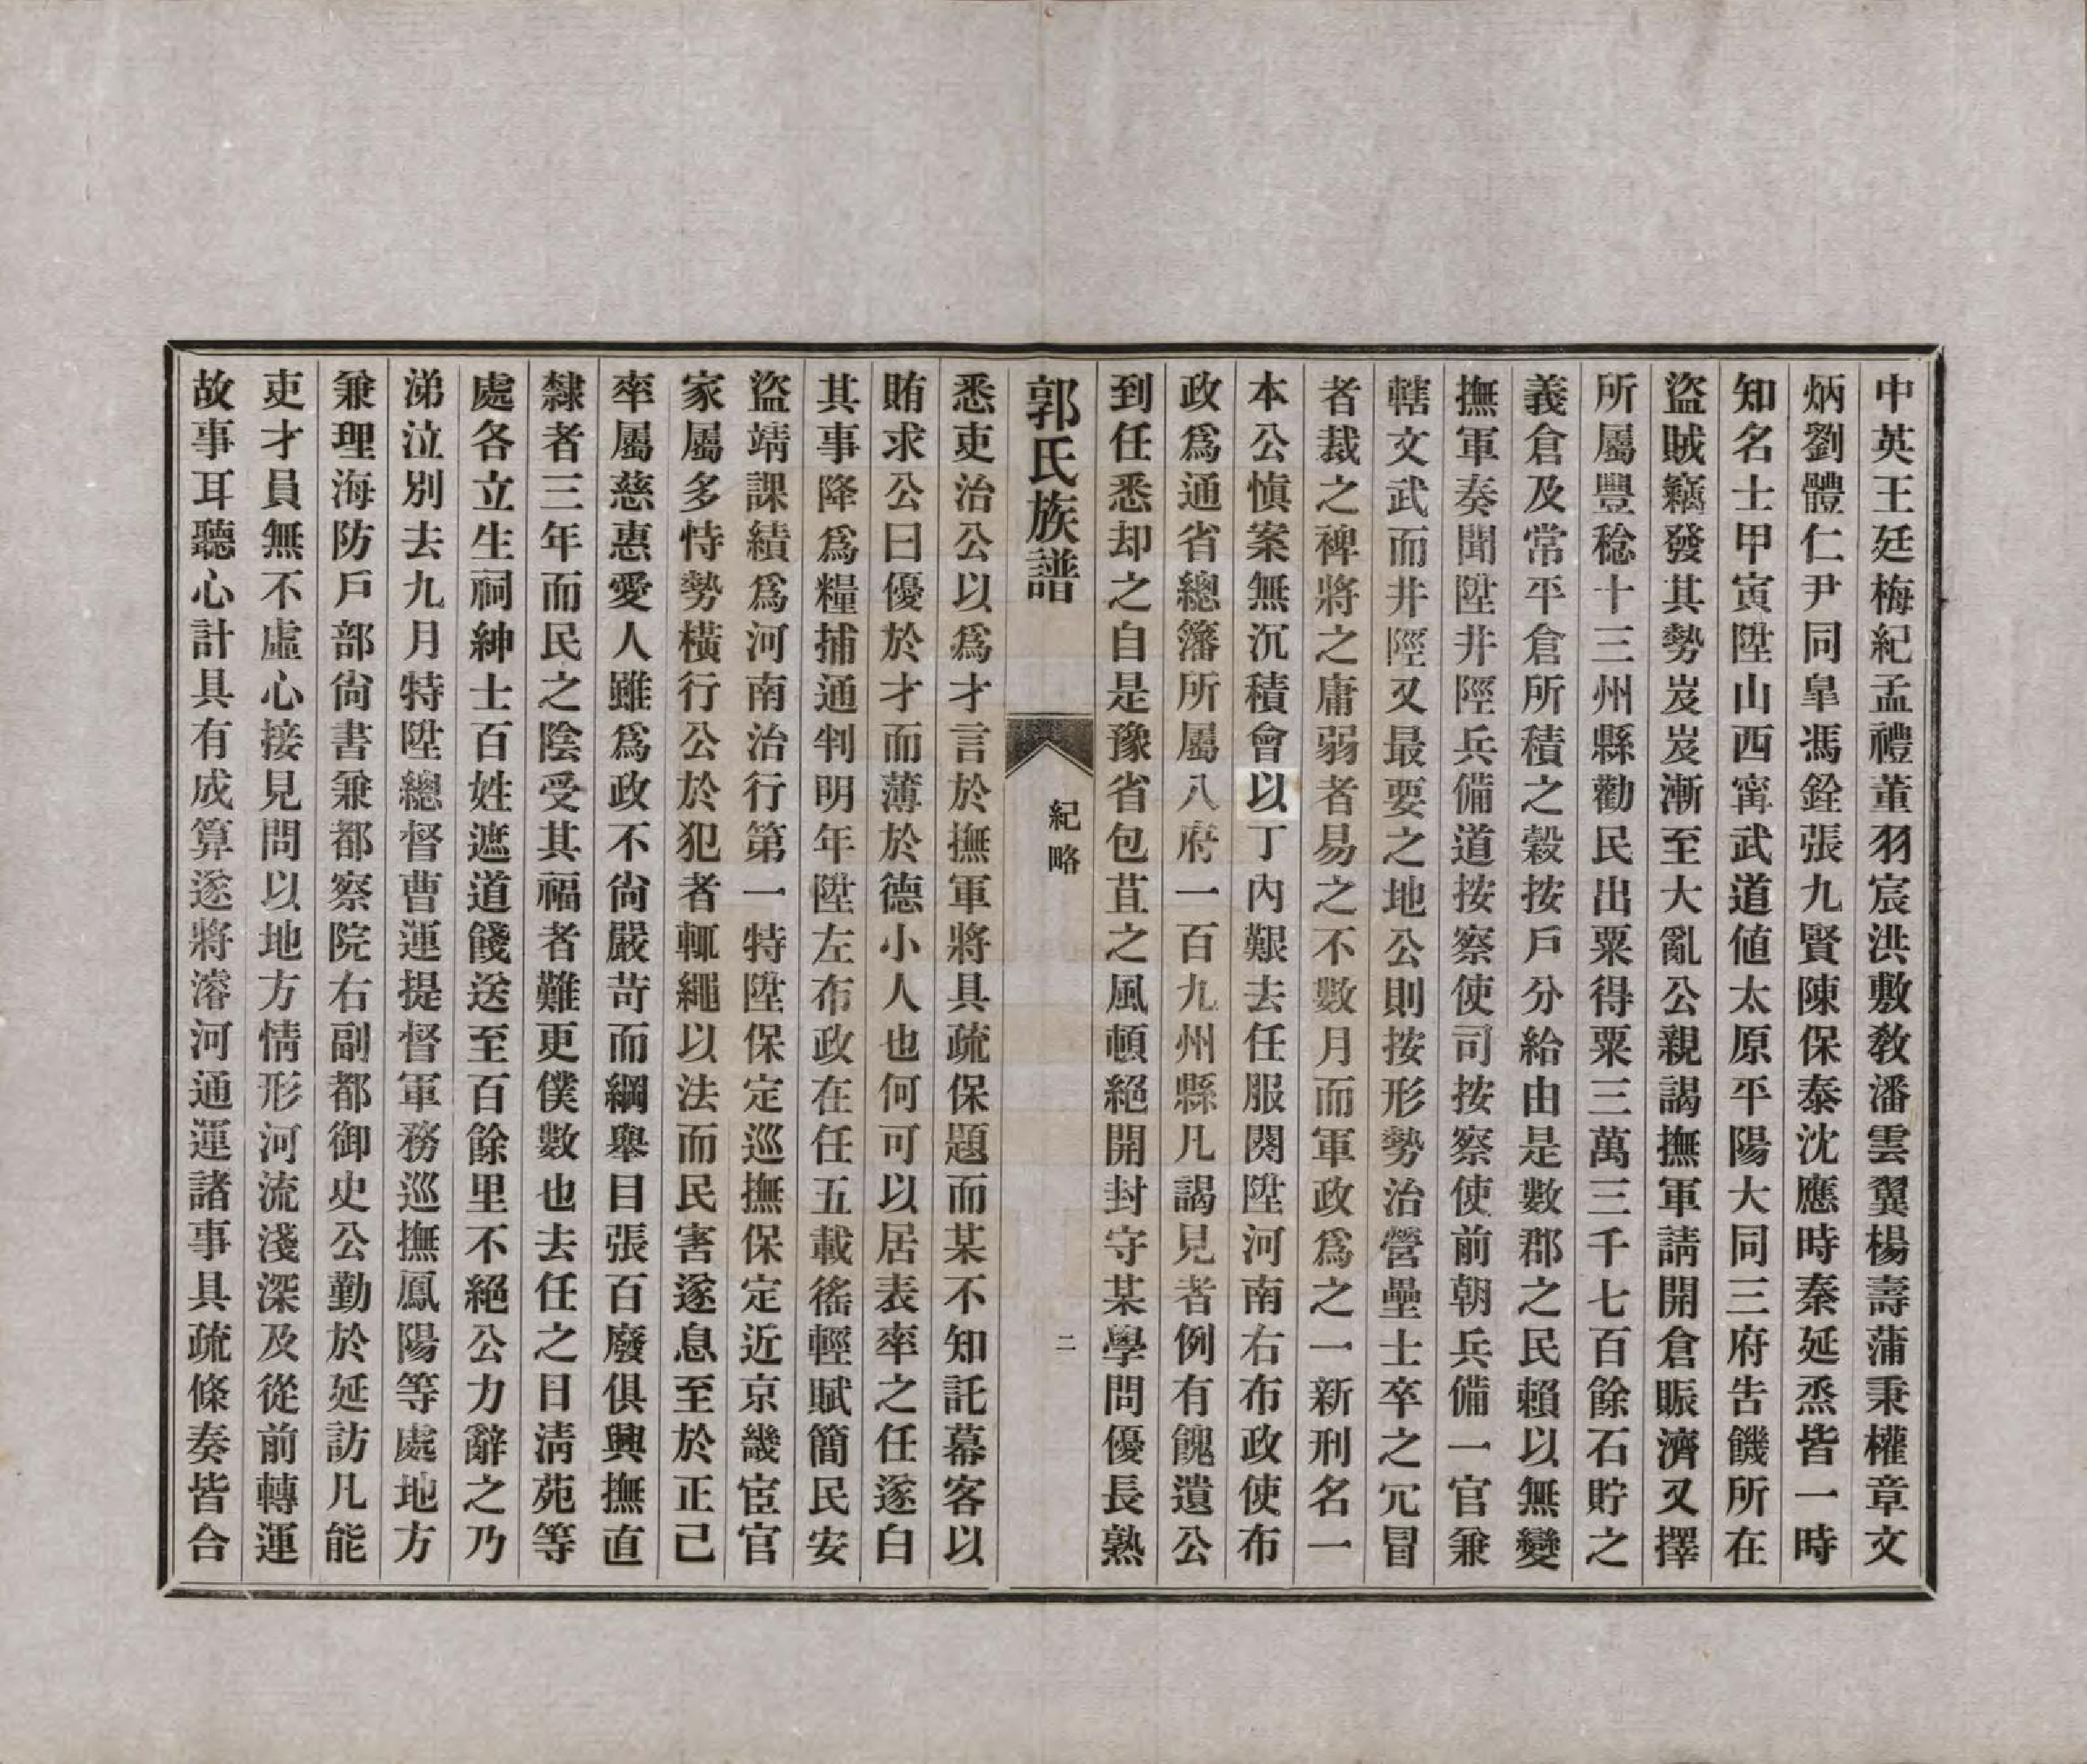 中英王廷梅紀孟禮董羽宸洪敷敎潘雲翼楊壽蒲秉權章文
炳劉體仁尹同臯馮銓張九賢陳保泰沈應時秦延烝皆一時
知名士甲寅陞山西甯武道値太原平陽大同三府吿饑所在
盜賊竊發其勢岌岌漸至大亂公親謁撫軍請開倉賑濟又擇
所屬豐稔十三州縣勸民出粟得粟三萬三千七百餘石貯之
義倉及常平倉所積之穀按戶分給由是數郡之民賴以無變
撫軍奏聞陞井陘兵備道按察使司按察使前朝兵備一官兼
轄文武而井陘又最要之地公則按形勢治營壘士卒之冗冒
者裁之裨將之庸弱者易之不數月而軍政爲之一新刑名一
本公愼案無沉積會以丁內艱去任服闋陞河南右布政使布
政爲通省總藩所屬八府一百九州縣凡謁見者例有餽遺公
到任悉却之自是豫省包苴之風頓絕開封守某學問優長熟
郭氏族譜
紀略
二
悉吏治公以爲才言於撫軍將具疏保題而某不知託幕客以
賄求公曰優於才而薄於德小人也何可以居表率之任遂白
其事降爲糧捕通判明年陞左布政在任五載徭輕賦簡民安
盜靖課績爲河南治行第一特陞保定巡撫保定近京畿宦官
家屬多恃勢橫行公於犯者輒繩以法而民害遂息至於正己
率屬慈惠愛人雖爲政不尙嚴苛而綱舉目張百廢俱興撫直
隸者三年而民之陰受其福者難更僕數也去任之日淸苑等
處各立生祠紳士百姓遮道餞送至百餘里不絕公力辭之乃
涕泣別去九月特陞總督曹運提督軍務巡撫鳳陽等處地方
兼理海防戶部尙書兼都察院右副都御史公勤於延訪凡能
吏才員無不虛心接見問以地方情形河流淺深及從前轉運
故事耳聽心計具有成算遂將濬河通運諸事具疏條奏皆合